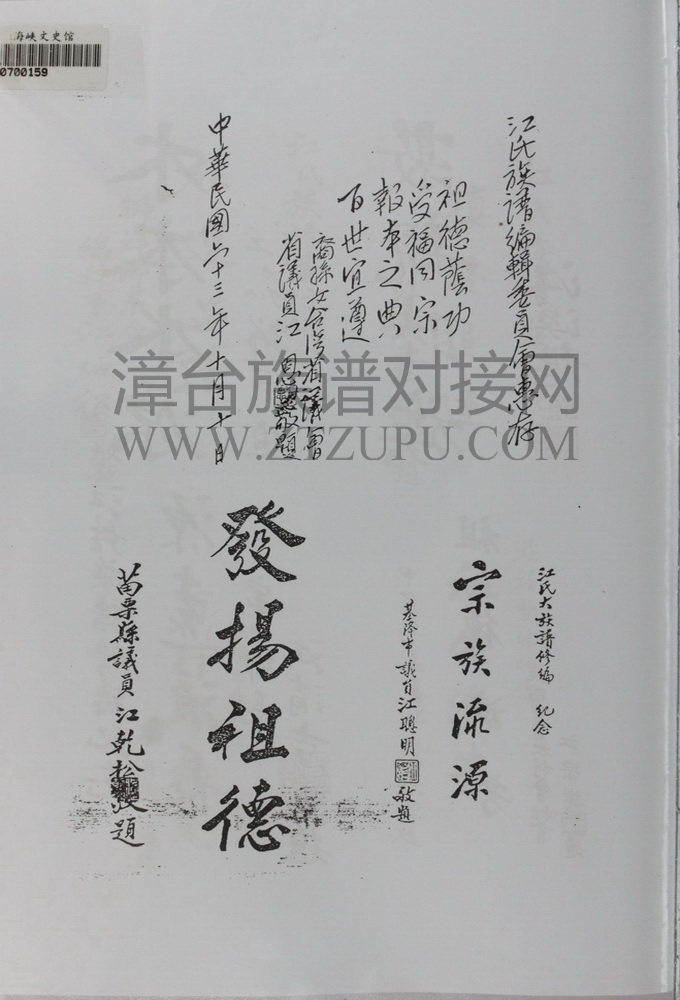 海峡文史馆
0700159
江氏族譜編輯委員會惠存
祖德蔭功
受福同宗
報本之典
百世宜遵
裔孫女台灣省議會
省議員江恩敬題
中華民國六十三年十月十日
漳台族谱对接网
WWW.ZTZUPU.COM
江氏大族譜修編 紀念
宗族流源
基隆市議員江聰明 敬題
發揚祖德
苗栗縣議員江乾松敬題